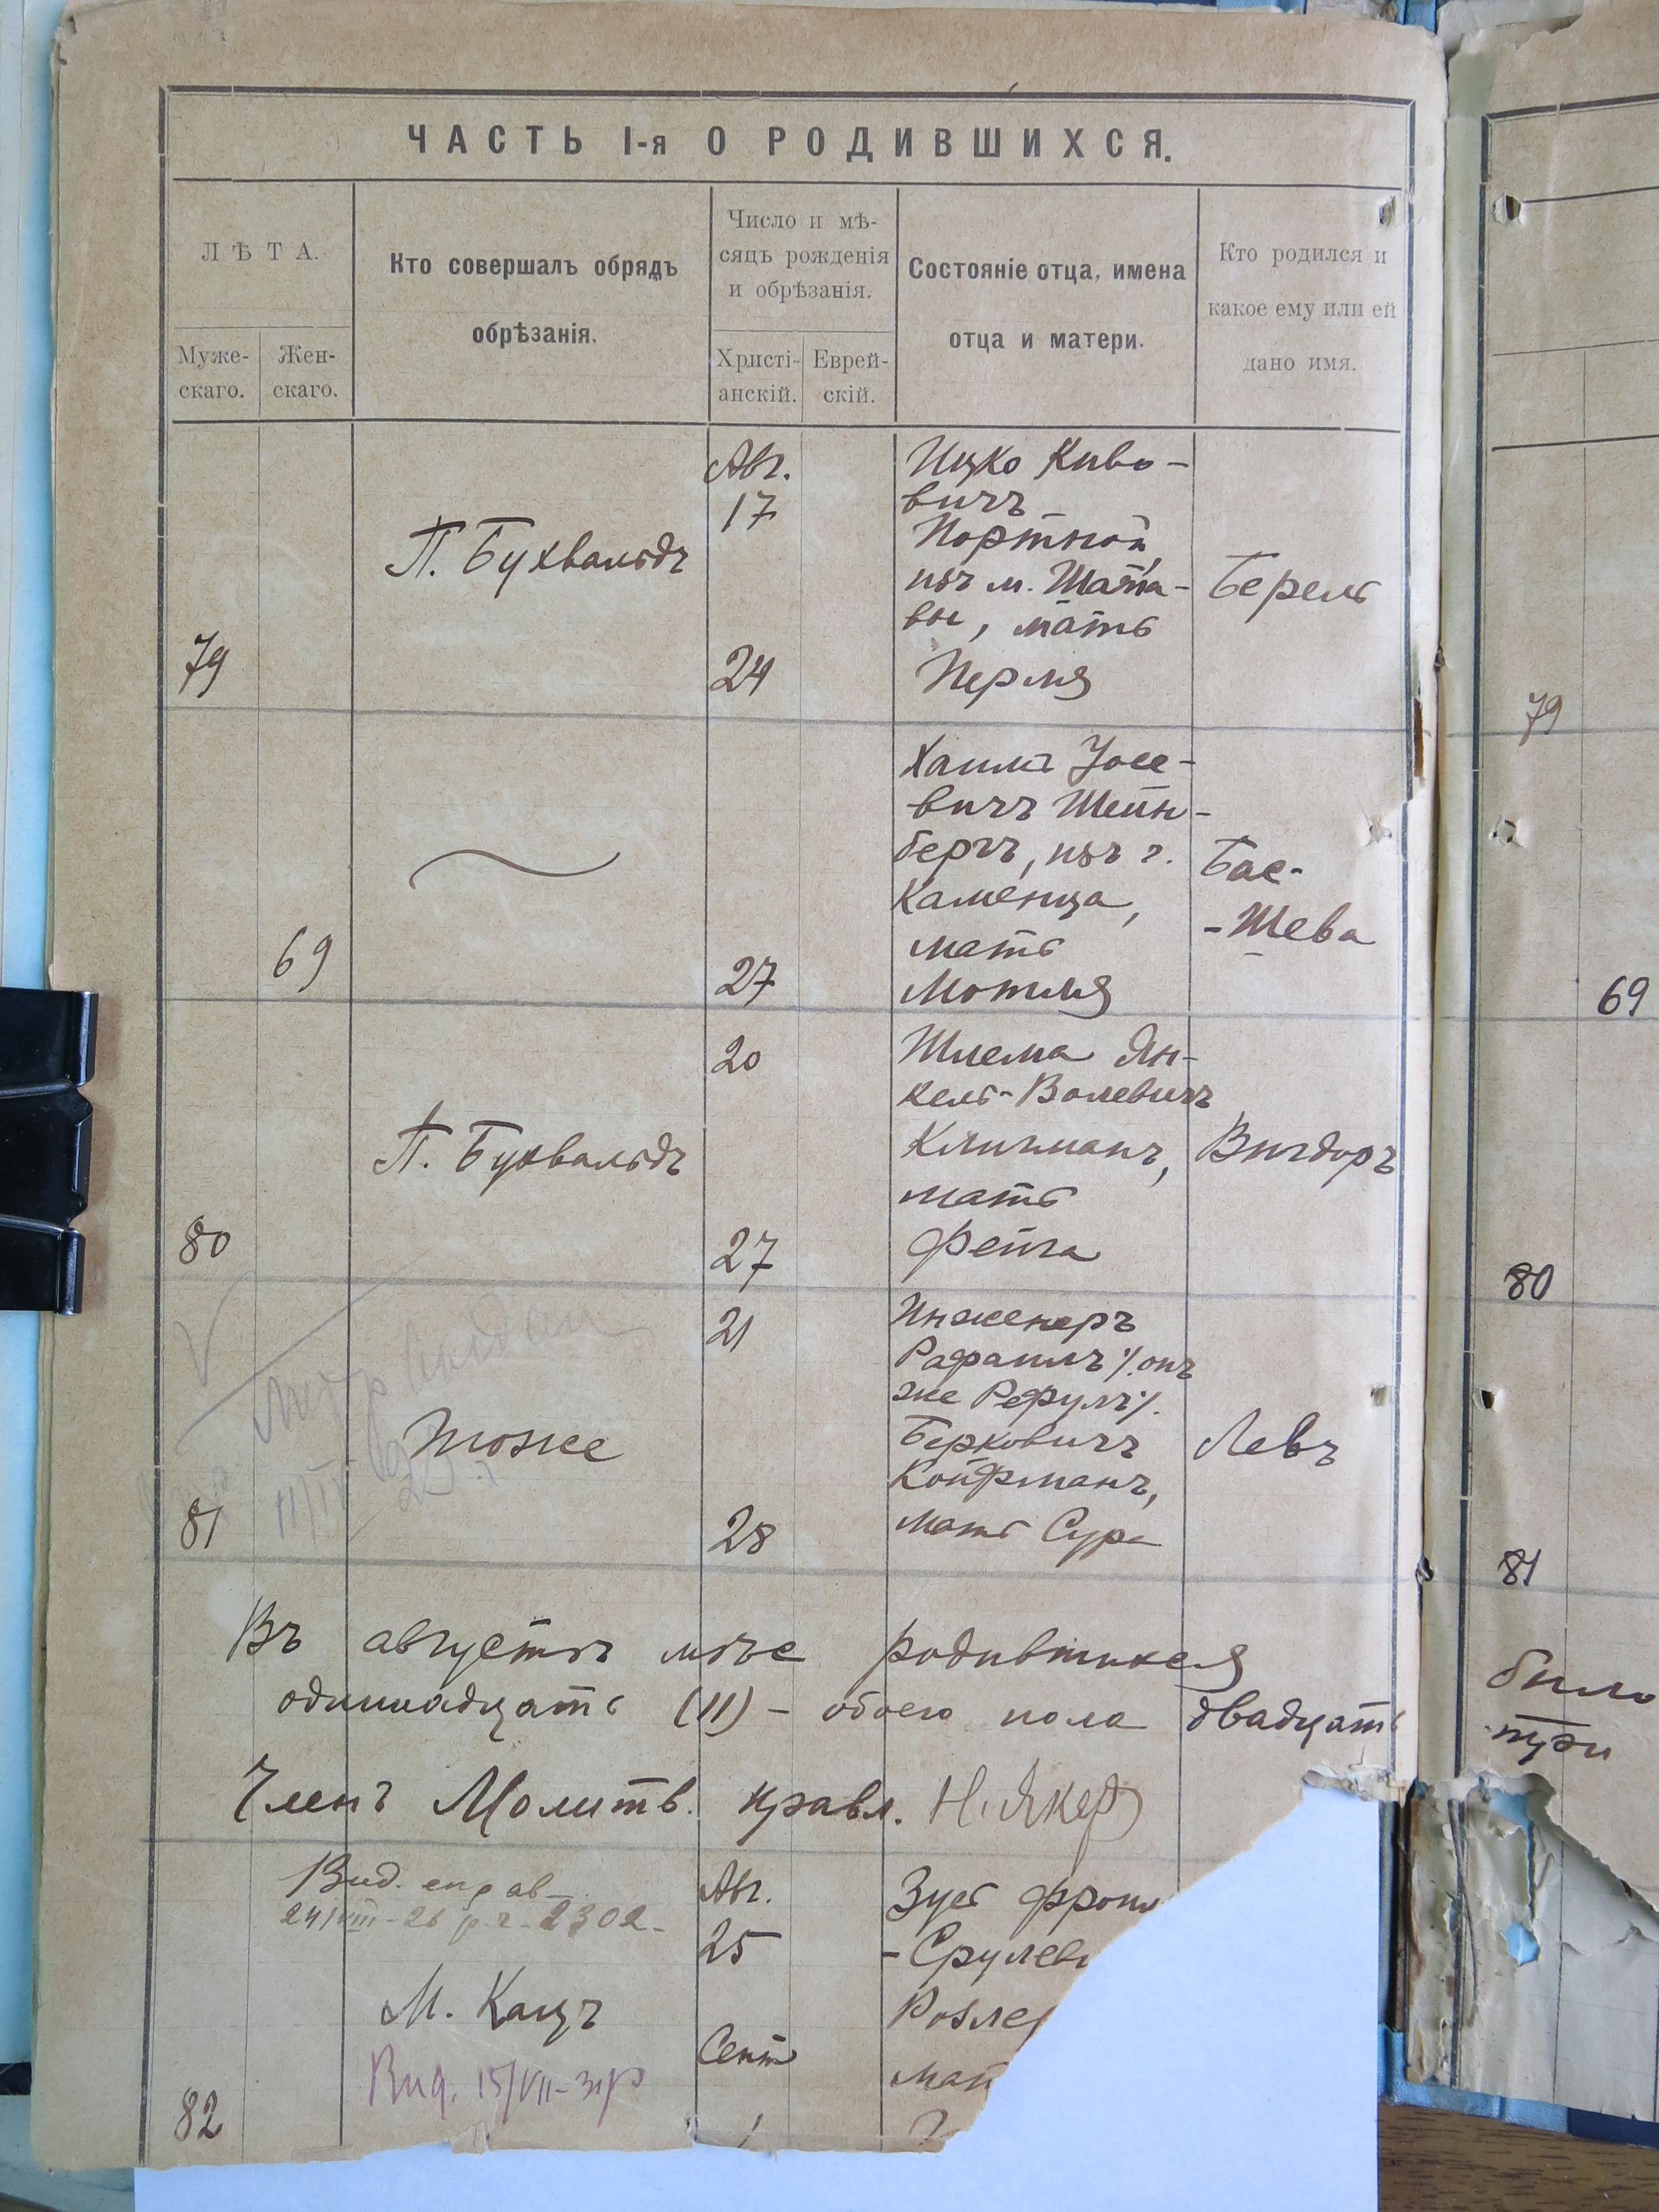 ЧАСТЬ I-я О РОДИВШИХСЯ.
ЛѢТА.
Муже-
скаго.
Жен-
скаго.
Кто совершалъ обрядъ
обрѣзанія.
Число и мѣ-
сяцъ рожденія
и обрѣзанія.
Христі-
анскій.
Еврей-
скій.
Состояніе отца, имена
отца и матери.
Кто родился и
какое ему или ей
дано имя.
79
П. Бухвальдъ
Авг.
17
24
Ицко Киво-
вичъ
Портной,
изъ м. Шата-
вы, мать
Перля
Берель
79
69
27
Хаимъ Іосе-
вичъ Шейн-
бергъ, изъ г.
Каменца,
мать
Мотля
Бас-
-Шева
69
80
П. Бухвальдъ
20
27
Шлема Ян-
кель-Волевичъ
Кличманъ,
мать
Фейга
Вигдоръ
80
81
тоже
21
28
Инженеръ
Рафаилъ /. онъ
же Рефулъ /.
Берковичъ
Койфманъ,
мать Сура
Левъ
81
Въ августѣ м-цѣ родившихся
одиннадцать (11) - обоего пола двадцать
было
три
Членъ Молитв. правл. Н. Якер
82
Вид. справ-
24/VIII-26 р. г. 2302-
М. Кацъ
Вид. 15/VII-31 р
Авг.
25
Сент
1
Зусь Фроим
-Срулеви
Розле
мат